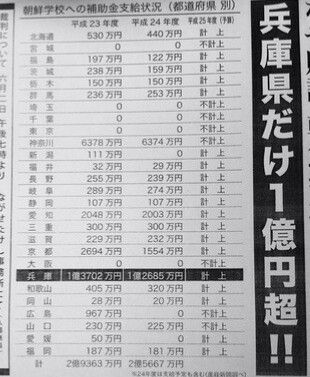 兵庫県だけ1億円超!!
朝鮮学校への補助金支給状況(都道府県 別)
平成23年度 平成24年度 平成25年度(予算)
北海道 530万円 440万円 計上
宮城 0 0 不計上
福島 197万円 122万円 計上
茨城 238万円 159万円 計上
栃木 150万円 150万円 計上
群馬 236万円 253万円 計上
埼玉 0 0 不計上
千葉 0 0 不計上
東京 0 0 不計上
神奈川 6378万円 6374万円 不計上
新潟 111万円 0 計上
福井 32万円 29万円 計上
長野 255万円 239万円 計上
岐阜 289万円 274万円 計上
静岡 107万円 107万円 計上
愛知 2048万円 2003万円 計上
三重 300万円 300万円 計上
滋賀 229万円 232万円 計上
京都 2694万円 1554万円 計上
大阪 0 0 不計上
兵庫 1億3702万円 1億2685万円 計上
和歌山 405万円 320万円 計上
岡山 28万円 20万円 計上
広島 967万円 0 不計上
山口 230万円 225万円 不計上
愛媛 50万円 0 計上
福岡 187万円 181万円 計上
計 2億9363万円 2億5667万円
※24年度は支給予定も含む(産経新聞調べ)
裁判について
六月二日
午後七時より